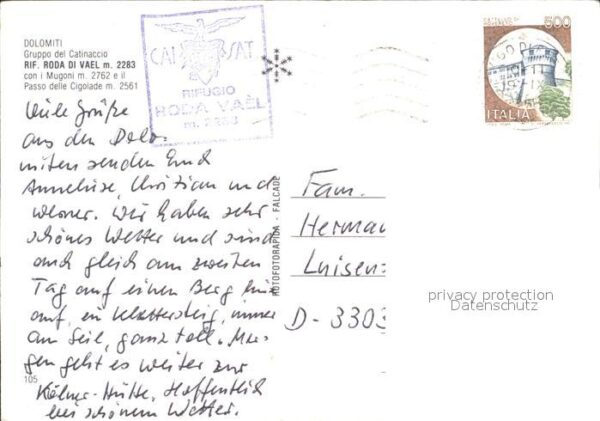 DOLOMITI
Gruppo del Catinaccio
RIF. RODA DI VAEL m. 2283
con i Mugoni m. 2762 e il
Passo delle Cigolade m. 2561
CAI SAT
RIFUGIO
RODA VAÈL
m. 2283
500
ITALIA
Viele Grüße
aus den Dolo-
miten senden Euch
Anneliese, Christian und
Werner. Wir haben sehr
schönes Wetter und sind
auch gleich am zweiten
Tag auf einen Berg hin-
auf, ein Klettersteig, immer
am Seil, ganz toll. Mor-
gen geht es weiter zur
Kölner-Hütte. Hoffentlich
bei schönem Wetter.
105
ROTOFOTORAPIDA - FALCADE
Fam.
Herman
Luisen
D-3303
privacy protection
Datenschutz